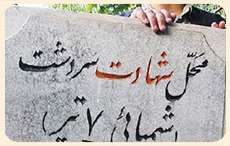 محلّ شهادت سردشت
(شیمیائی ۷ تیر)